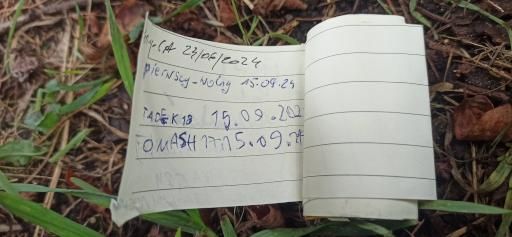 23/06/2024
pierwszy-wolny 15.09.24
TADEK13 15.09.202
TOMASH 17:15.09.24